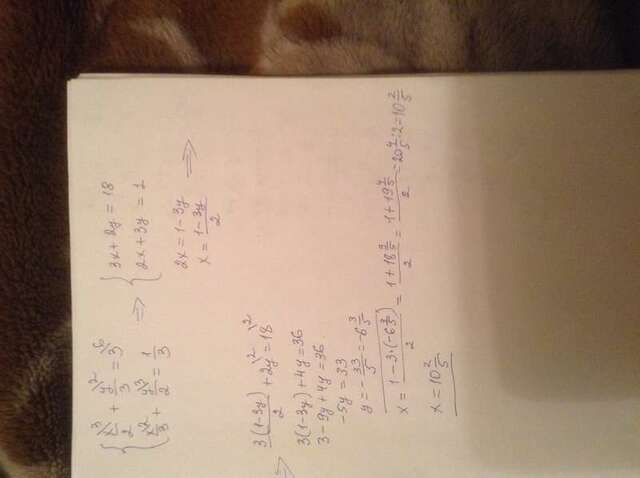 { x\3/2 + y\2/3 = 3\6 => { 3x + 2y = 18
{ x\2/3 + y\3/2 = 1/3 { 2x + 3y = 1
2x = 1 - 3y
x = (1 - 3y)/2 =>
=> 3(1-3y)/2 + 2y\2 = 18\2
3(1-3y) + 4y = 36
3 - 9y + 4y = 36
-5y = 33
y = -33/5 = -6 3/5
x = (1 - 3·(-6 3/5))/2 = (1 + 18 9/5)/2 = (1 + 19 4/5)/2 = 20 4/5 : 2 = 10 2/5
x = 10 2/5